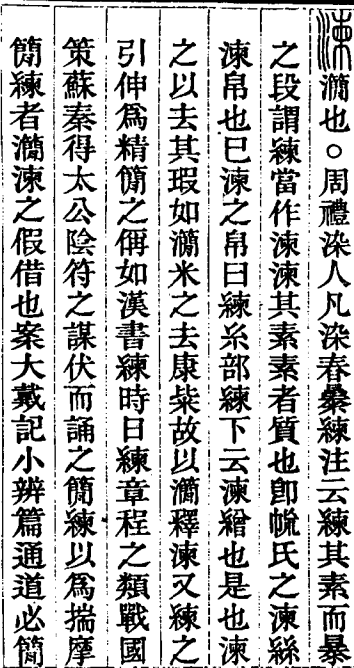 湅 㶕也○周禮染人凡染春㬥練注云練其素而㬥
之段謂練當作湅湅其素素者質也卽㡛氏之湅絲
湅帛也巳湅之帛曰練糸部練下云湅繒也是也湅
之以去其瑕如㶕米之去康粊故以㶕釋湅又練之
引伸爲精𥳑之偁如漢書練時日練章程之類戰國
策蘇秦得太公陰符之謀伏而誦之𥳑練以爲揣摩
𥳑練者㶕湅之假借也案大戴記小辨篇通道必𥳑